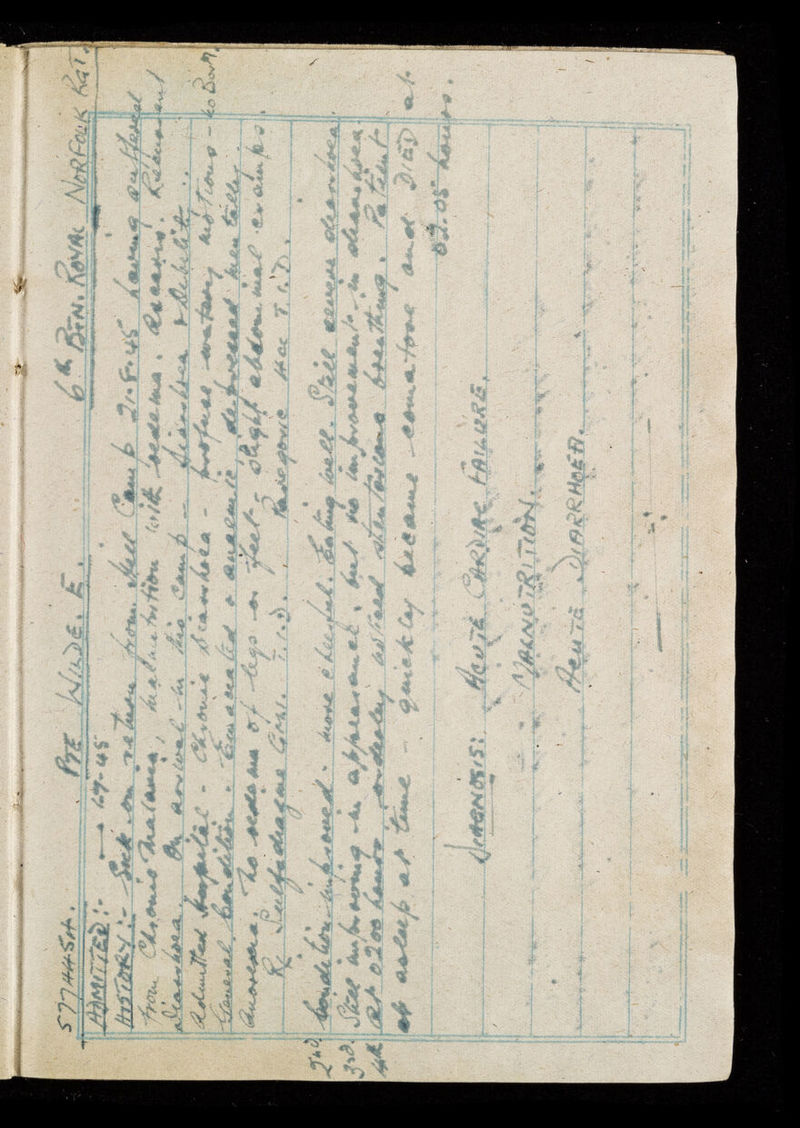 5774454. PTE WILDE. E. 6th BTN. ROYAL NORFOLK RGT.
ADMITTED:- 1-9-45
HISTORY:- Sick on return from Camp 21.8.45 having suffered
from Chronic Malaria, Malnutrition with oedema. Ascaris. Recurrent
Diarrhoea. On arrival in this camp - Diarrhoea & Debility.
Admitted hospital - Chronic Diarrhoea - profuse watery motions - no B or M.
General Condition. Emaciated & anaemic depressed mentally.
Anorexia. No oedema of legs or feet - slight abdominal cramps.
Rx Sulfadiazine Gm1. T.I.D. Paregoric T.I.D.
2nd. Condition improved - more cheerful. Eating well. Still severe diarrhoea.
3rd. Still improving in appearance, but no improvement in diarrhoea.
4th At 0200 hours orderly noticed stertorous breathing. Patient
asleep at time - quickly became comatose and DIED at
02.05 hours.
DIAGNOSIS: ACUTE CARDIAC FAILURE.
MALNUTRITION.
ACUTE DIARRHOEA.